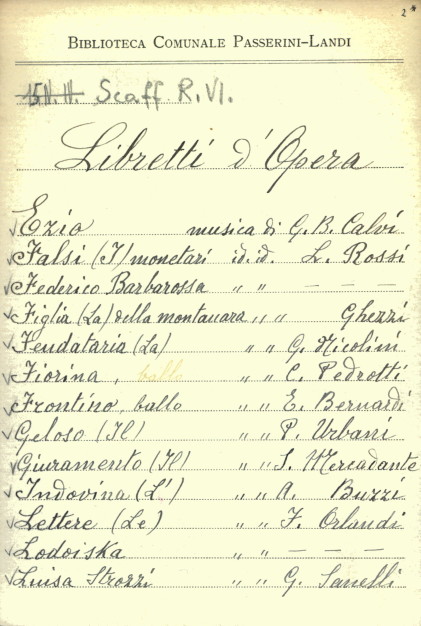 2*
BIBLIOTECA COMUNALE PASSERINI-LANDI
15N.H. Scaff R.VI.
Libretti d'Opera
Ezio musica di G. B. Calvi
Falsi (I) monetari id. id. L. Rossi
Federico Barbarossa " " — — —
Figlia (La) della montanara " " Ghezzi
Feudataria (La) " " G. Nicolini
Fiorina, ballo " " C. Pedrotti
Frontino, ballo " " E. Bernardi
Geloso (Il) " " P. Urbani
Giuramento (Il) " " S. Mercadante
Indovina (L') " " A. Buzzi
Lettere (Le) " " F. Orlandi
Lodoiska " " — — —
Luisa Strozzi " " G. Sanelli